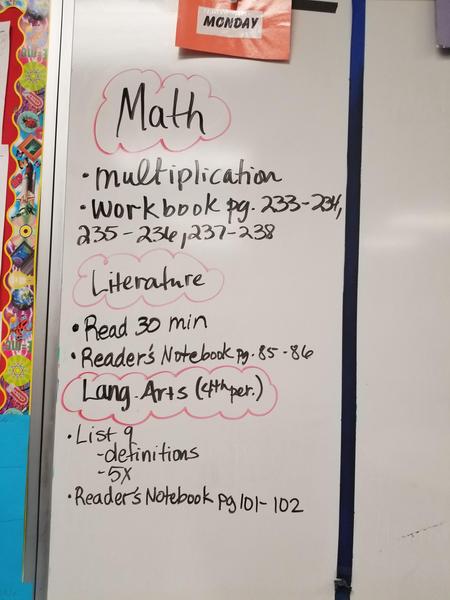 MONDAY
Math
• multiplication
• Workbook pg. 233-234,
235-236, 237-238
Literature
• Read 30 min
• Reader's Notebook pg. 85-86
Lang. Arts (4th per.)
• List 9
-definitions
-5X
• Reader's Notebook pg 101-102